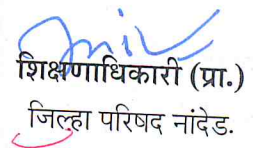 शिक्षणाधिकारी (प्रा.)
जिल्हा परिषद नांदेड.